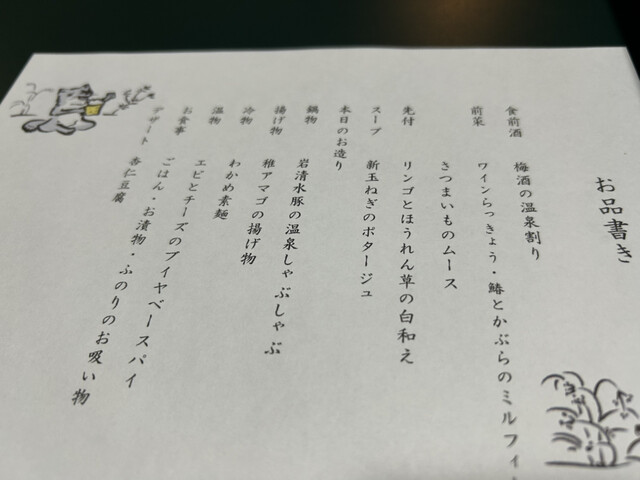 お品書き
食前酒 梅酒の温泉割り
前菜 ワインらっきょう・鰆とかぶらのミルフィ
さつまいものムース
先付 リンゴとほうれん草の白和え
スープ 新玉ねぎのポタージュ
本日のお造り
鍋物 岩清水豚の温泉しゃぶしゃぶ
揚げ物 稚アマゴの揚げ物
冷物 わかめ素麺
温物 エビとチーズのブイヤベースパイ
お食事 ごはん・お漬物・ふのりのお吸い物
デザート 杏仁豆腐